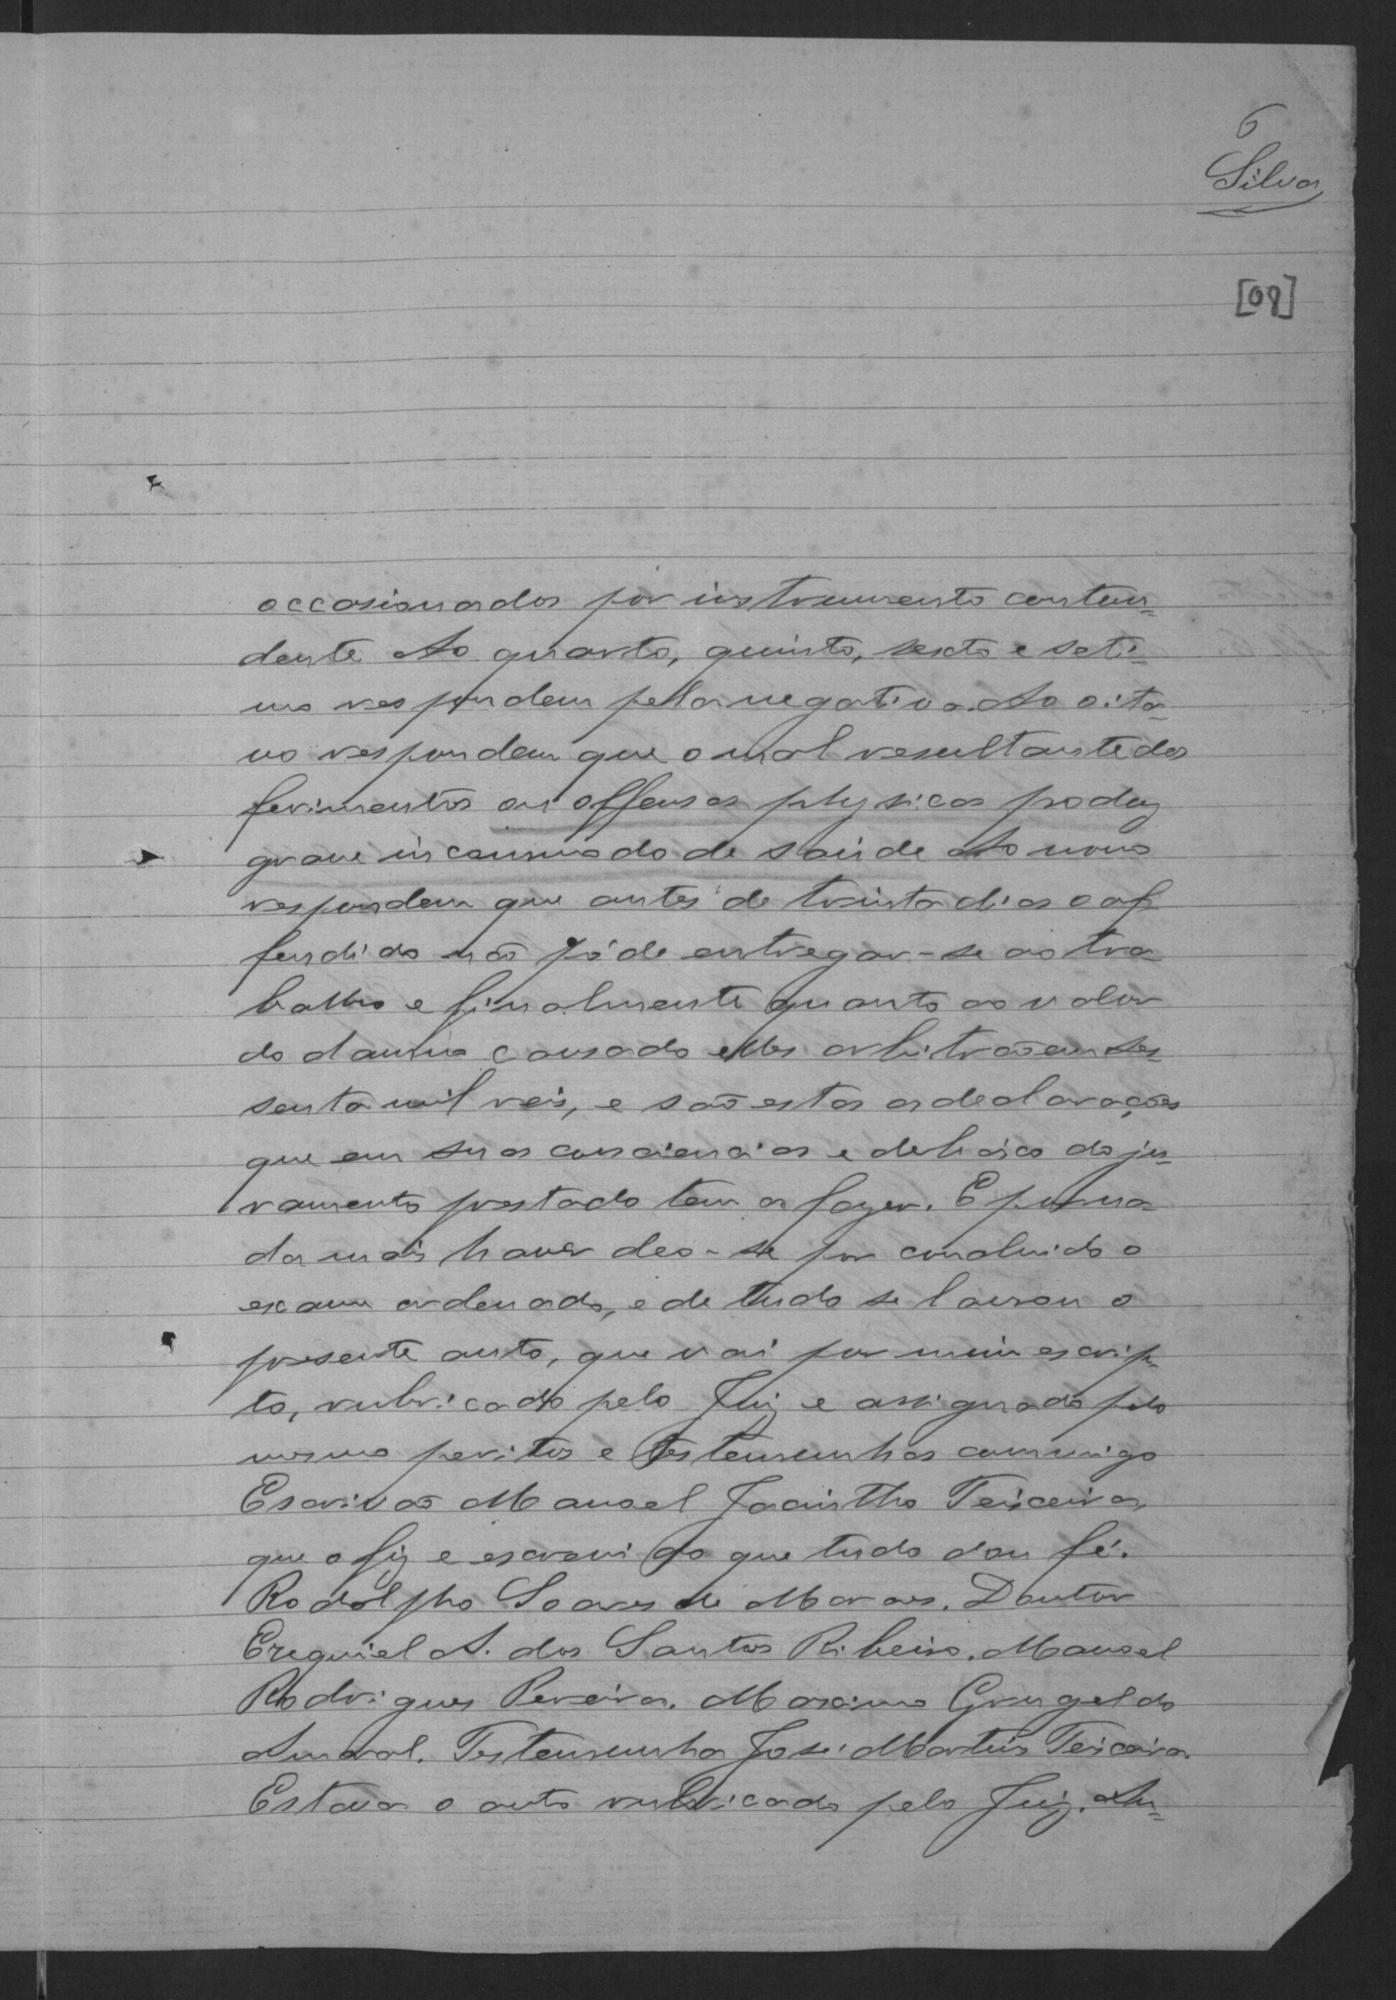 6
Silva
[08]
occasionados por instrumento contun=
dente Ao quarto, quinto, sexto e seti=
mo respondem pela negativa. Ao oita=
vo respondem que o mal resultante dos
ferimentos ou offensas physicas produz
grave incommodo de saúde Ao nono
respondem que antes de trinta dias o of
fendido não póde entregar-se ao tra
balho e finalmente quanto ao valor
do damno causado elles arbitrão em ses
senta mil reis, e são estas as declarações
que em suas consciencias e debaixo do ju=
ramento prestado tem a fazer. E por na
da mais haver deo-se por concluido o
exame ordenado, e de tudo se lavrou o
presente auto, que vai por mim escrip
to, rubricado pelo Juiz e assignado pelo
mesmo peritos e testemunhas commigo
Escrivão Manoel Jacintho Teixeira,
que o fiz e escrevi do que tudo dou fé.
Rodolpho Soares de Moraes. Doutor
Ezequiel A. dos Santos Ribeiro. Manoel
Rodrigues Pereira. Maximo Grugel do
Amaral. Testemunha José Martins Teixeira.
Estava o auto rubricado pelo Juiz. An=